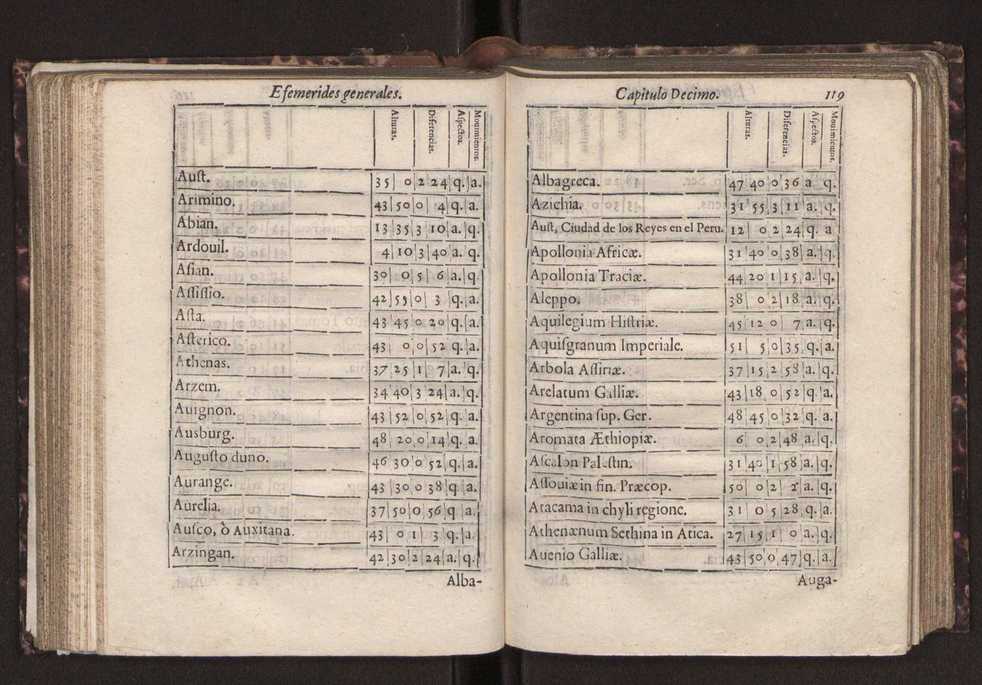 Efemerides generales.
Alturas. Diferencias. Aspectos. Mouimientos.
Aust. 35 0 2 24 q. a.
Arimino. 43 50 0 4 q. a.
Abian. 13 35 3 10 a. q.
Ardouil. 4 10 3 40 a. q.
Asian. 30 0 5 6 a. q.
Assissio. 42 59 0 3 q. a.
Asta. 43 45 0 20 q. a.
Asterico. 43 0 0 52 q. a.
Athenas. 37 25 1 7 a. q.
Arzem. 34 40 3 24 a. q.
Auignon. 43 52 0 52 q. a.
Ausburg. 48 20 0 14 q. a.
Augusto duno. 46 30 0 52 q. a.
Aurange. 43 30 0 38 q. a.
Aurelia. 37 50 0 56 q a.
Ausco, ò Auxitana. 43 0 1 3 q. a.
Arzingan. 42 30 2 24 a. q.
Alba-
Capitulo Decimo. 119
Alturas. Diferencias. Aspectos. Mouimientos.
Albagreca. 47 40 0 36 a q.
Azichia. 31 55 3 11 a. q.
Aust, Ciudad de los Reyes en el Peru. 12 0 2 24 q. a
Apollonia Africæ. 31 40 0 38 a. q.
Apollonia Traciæ. 44 20 1 15 a. q.
Aleppo. 38 0 2 18 a. q.
Aquilegium Histriæ. 45 12 0 7 a. q.
Aquisgranum Imperiale. 51 5 0 35 q. a.
Arbola Assiriæ. 37 15 2 58 a. q.
Arelatum Galliæ. 43 18 0 52 q a.
Argentina sup. Ger. 48 45 0 32 q. a.
Aromata Æthiopiæ. 6 0 2 48 a. q.
Ascalon Palestin. 31 40 1 58 a. q.
Assouiæ in fin. Præcop. 50 0 2 2 a. q.
Atacama in chyli regione. 31 0 5 28 q. a.
Athenænum Sethina in Atica. 27 15 1 0 a. q.
Auenio Galliæ. 43 50 0 47 q. a.
Auga-